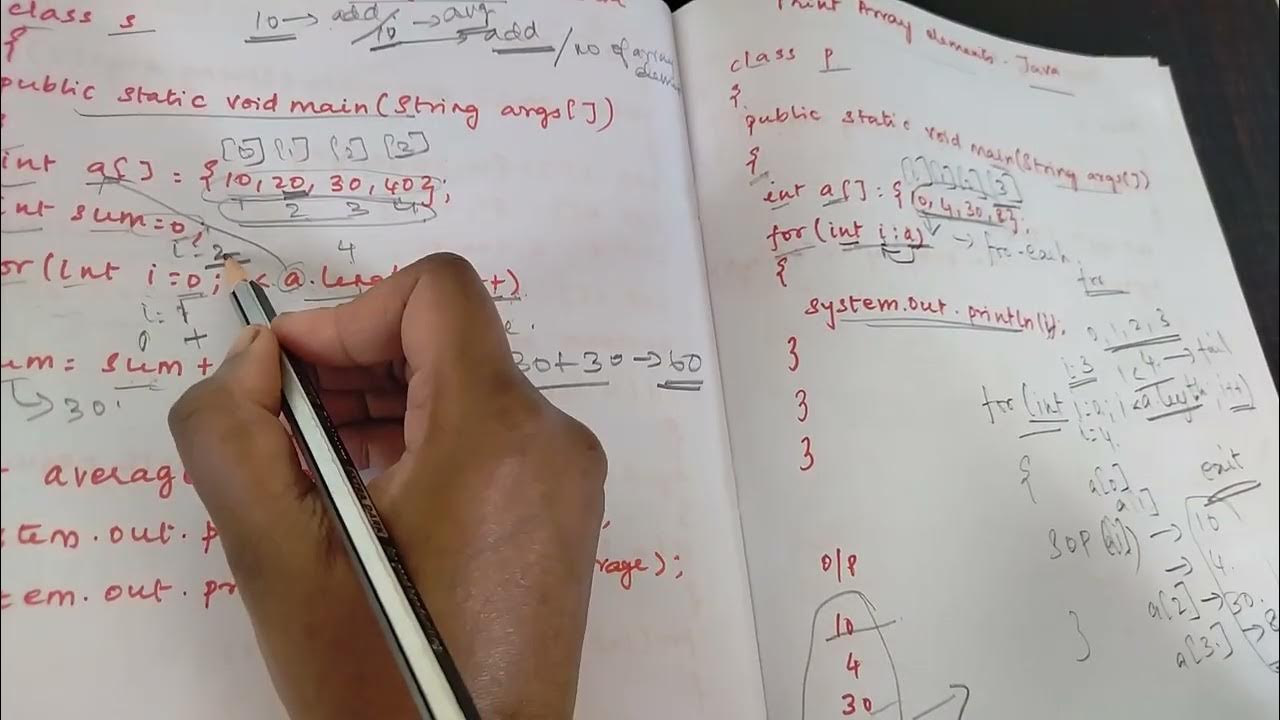 class s
10 → add/10 → avg
add / no of array
{
public static void main(String args[])
[0] [1] [2] [3]
int a[] = {10, 20, 30, 40};
1 2 3 4
int sum=0;
i=2
4
for (int i=0; < a.length ++)
i=1
0 +
sum = sum + 30+30 → 60
↳ 30
average
System.out.p
System.out.pr rage);
Print Array elements. Java
class p
{
public static void main(String args[])
{
[3]
int a[] = {10, 4, 30, 8};
for (int i:a) → for-each
{
for
system.out.println(i);
0, 1, 2, 3
}
i=3 4 → fail
for (int i=0; i<a.length, i++)
i=4
}
}
{
a[0]
a[1]
exit
SOP (a[i]) → 10
→ 4
a[2] → 30.
a[3] → 8
}
O/P
10
4
30